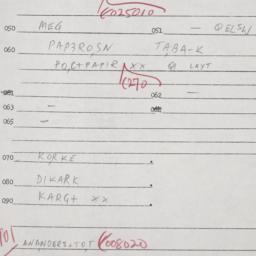 6025010
050 MEG 051 — QELSW
060 PAP3ROSN TABA-K
PO,C+PAPIR XX @ LAYT
(270
061 062 —
063 —
065 —
070 KORKE
080 DIKARK
090 KARG+ XX
101 ANANDERS,TO,T 008020